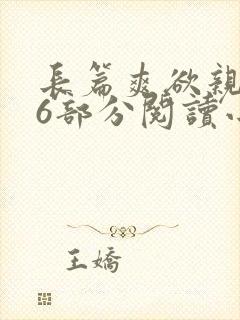 長篇爽欲親
6部分閱讀
王嬌